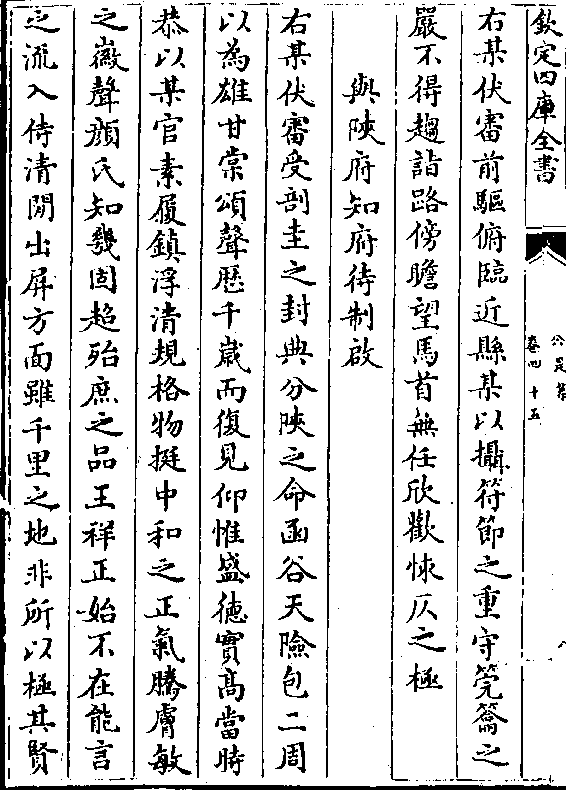 欽定四庫全書
公是集
卷四十五
右某伏審前驅俯臨近縣某以攝符節之重守筦籥之
嚴不得趨詣路傍瞻望馬首無任欣歡悚仄之極
與陜府知府待制啟
右某伏審受剖圭之封典分陜之命函谷天險包二周
以為雄甘棠頌聲歴千嵗而復見仰惟盛徳實髙當時
恭以某官素履鎮浮清規格物挺中和之正氣騰膚敏
之徽聲顔氏知幾固超殆庶之品王祥正始不在能言
之流入侍清閒出屏方面雖千里之地非所以極其賢